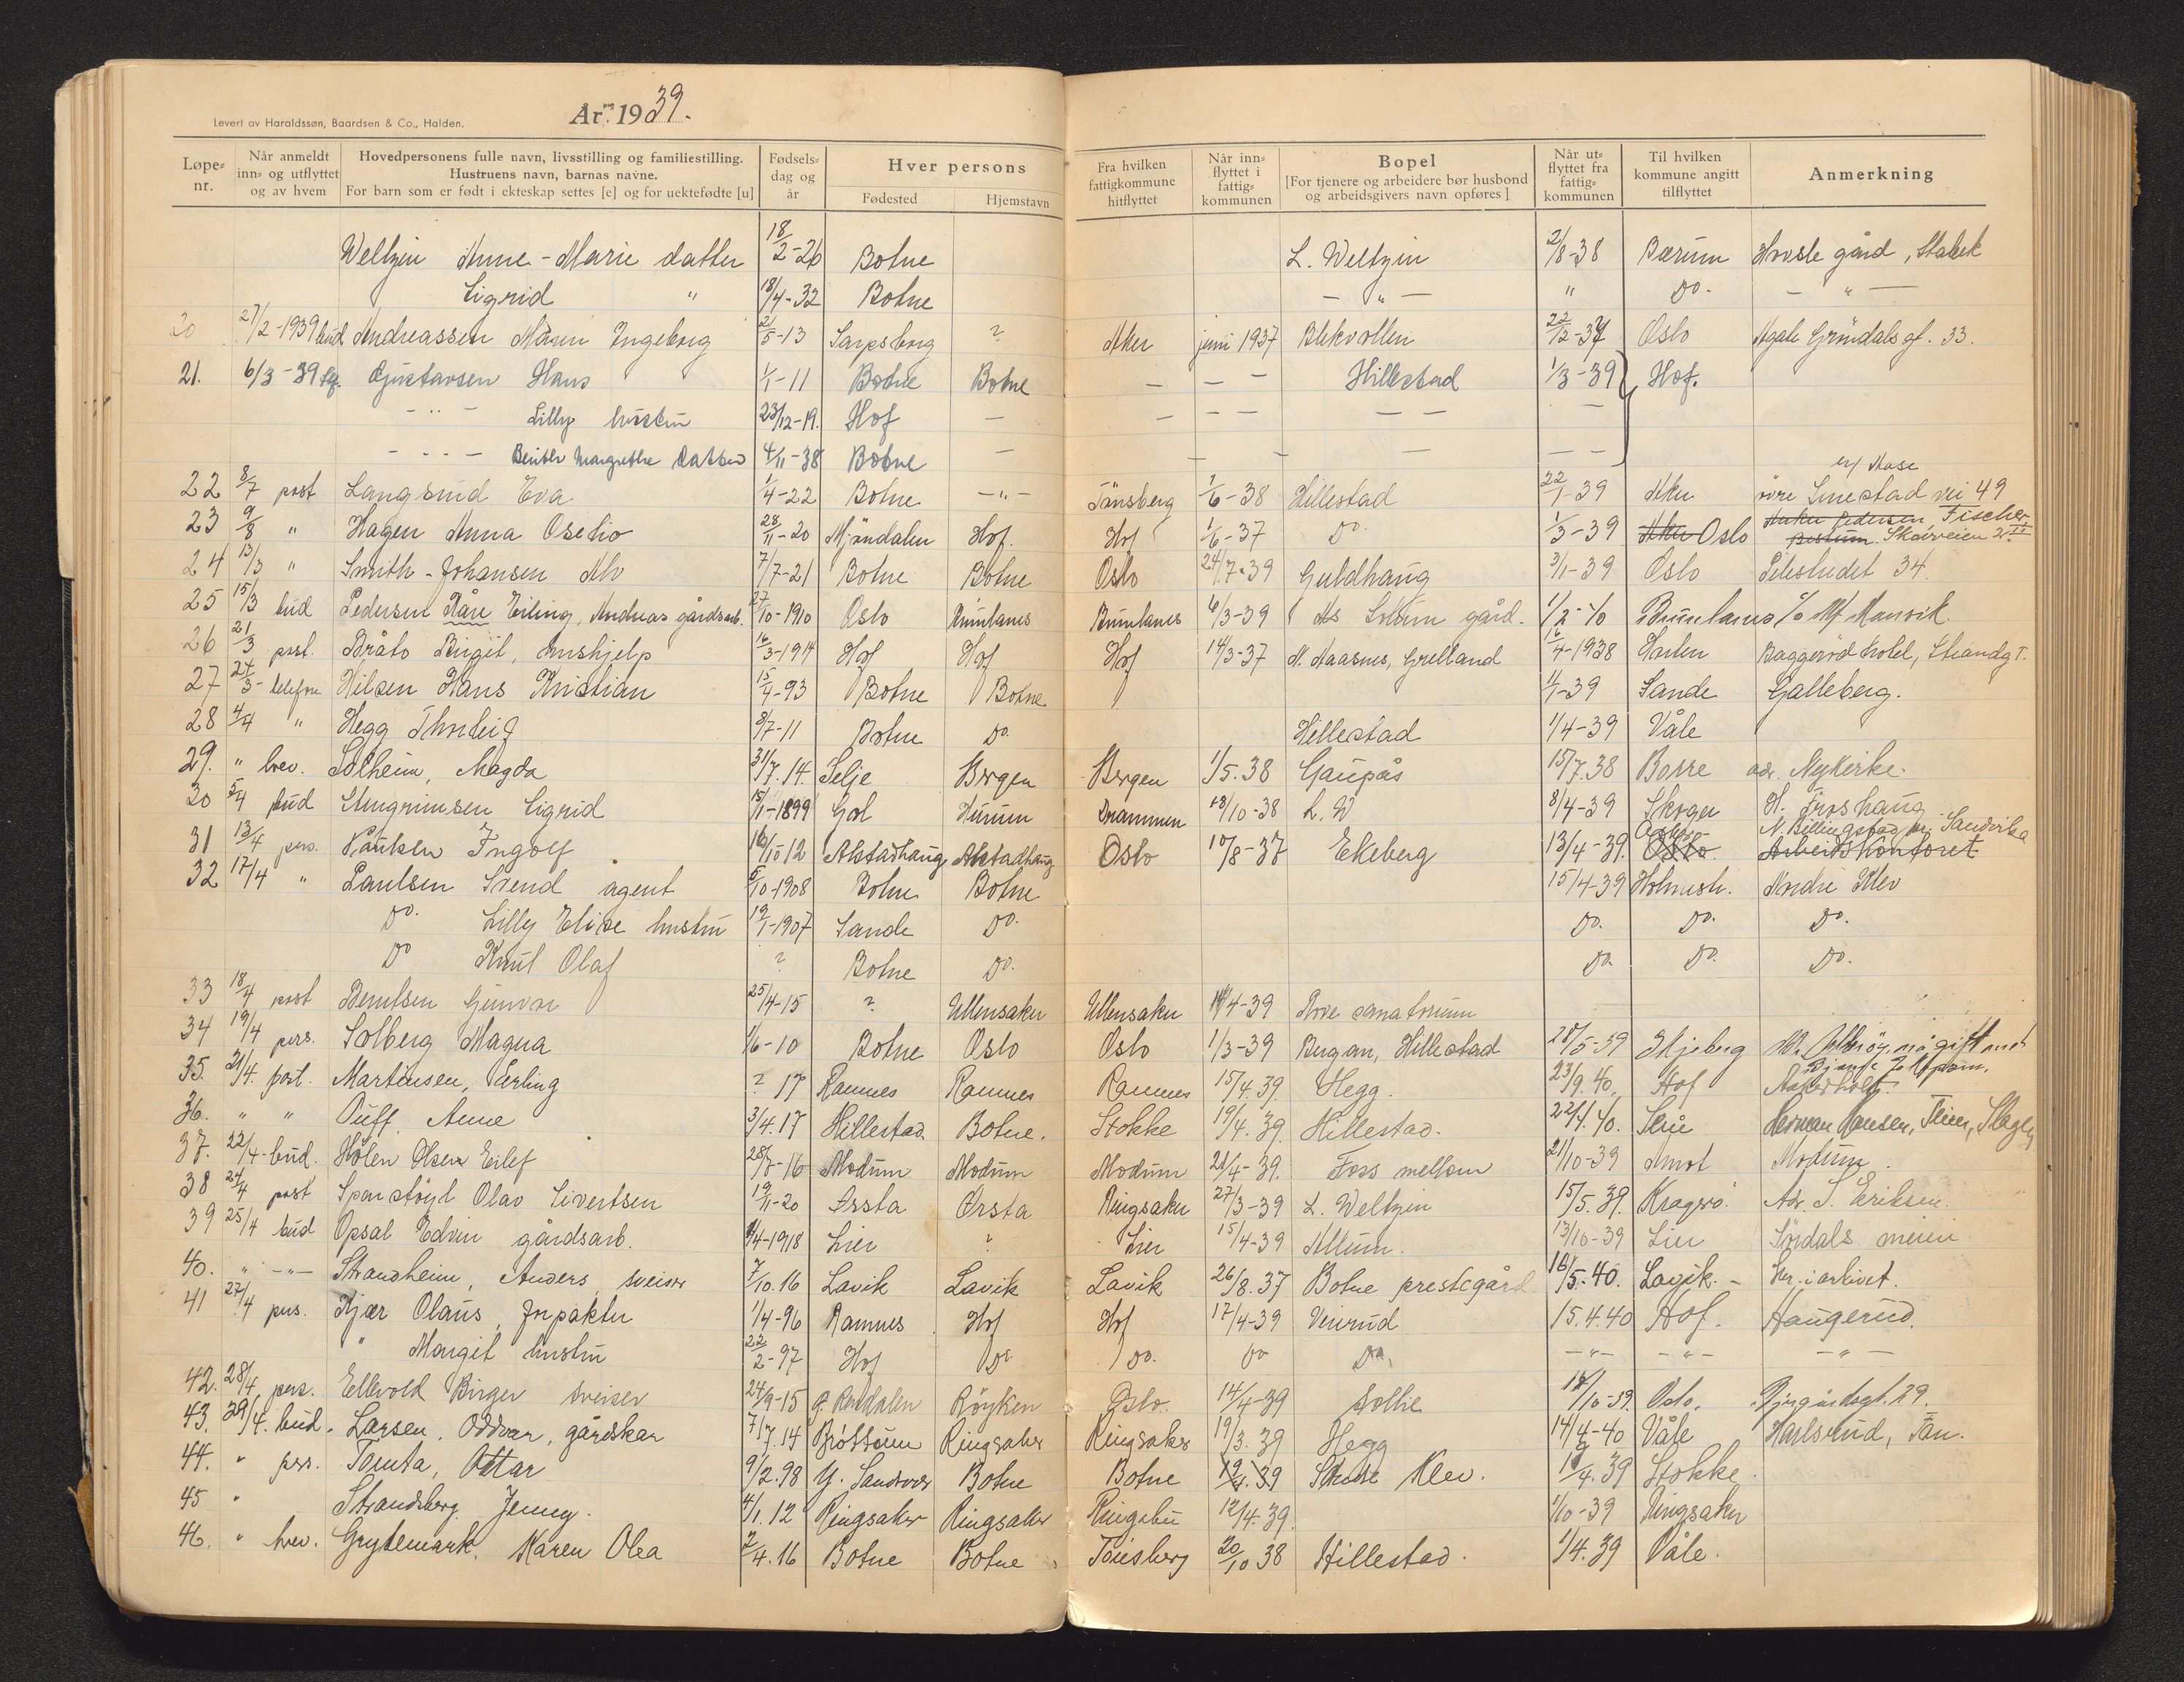 Levert av Haraldssøn, Baardsen & Co., Halden.
År 1939.
Løpe-nr. Når anmeldt inn- og utflyttet og av hvem Hovedpersonens fulle navn, livsstilling og familiestilling. Hustruens navn, barnas navne. For barn som er født i ekteskap settes [e] og for uektefødte [u] Fødsels-dag og år Hver persons Fødested Hjemstavn Fra hvilken fattigkommune hitflyttet Når inn-flyttet i fattig-kommunen Bopel [For tjenere og arbeidere bør husbond og arbeidsgivers navn opføres] Når ut-flyttet fra fattig-kommunen Til hvilken kommune angitt tilflyttet Anmerkning
Weltzin Anne-Marie datter 18/2-26 Botne L. Weltzin 2/8-38 Bærum gård, Stabek
Sigrid " 18/4-32 Botne - " - " Do. - " -
20 27/2-1939 bud Andreassen Ingeborg 21/5-13 Sarpsborg ? Aker juni 1937 Blekvollen 22/2-37 Oslo Agate Gröndals gt. 33.
21. 6/3-39 Gustavsen Hans 1/1-11 Botne Botne - - - Hillestad 1/3-39 Hof.
- " - Lilly hustru 23/12-19. Hof - - - - - - -
- - - Margrethe datter 4/11-38 Botne - - - - - -
22 8/7 post Langsrud Eva 1/4-22 Botne -"- Tönsberg 1/6-38 Hillestad 22/1-39 Aker övre vei 49
23 9/8 " Hagen Anna 28/11-20 Mjöndalen Hof. Hof 1/6-37 Do 1/3-39 Aker Oslo Pedersen, Fischer
24 13/3 " Smith-Johansen Alv 7/7-21 Botne Botne Oslo 24/7-39 Guldhaug 3/1-39 Oslo Pilestredet 34.
25 15/3 bud Pedersen Kåre Eiling, Andreas gårdsarb. 27/10-1910 Oslo Brunlanes Brunlanes 6/3-39 As Solum gård. 1/2-40 Brunlanes
26 21/3 post. Bråto Birgit, hushjelp 16/3-1914 Hof Hof Hof 14/3-37 N. Aasnes, Grelland 16/4-1938 Horten Baggeröd hotel, Strandgt.
27 24/3- telefon Nilsen Hans Kristian 15/4-93 Botne Botne 1/1-39 Sande Galleberg.
28 4/4 " Hegg Thorleif 8/7-11 Botne Do. Hillestad 1/4-39 Våle
29. " brev. Solheim, Magda 31/7.14. Selje Bergen Bergen 1/5.38 Gaupås 15/7.38 Borre adr. Nykirke.
30 5/4 bud Sigrid 15/1-1899 Gol Hurum Drammen 18/10-38 L. W 8/4-39 Skoger H. Froshaug
31 13/4 pers. Paulsen Ingolf 16/10 12 Alstadhaug Alstadhaug Oslo 10/8-37 Ekeberg 13/4-39. Oslo Asker N. Billingstad pr. Sandvika Arbeidskontoret
32 17/4 " Paulsen Svend agent 5/10-1908 Botne Botne 15/4-39 Holmestr. Nordre Klev
Do. Lilly Elise hustru 19/1-1907 Sande Do. Do. Do. Do.
Do Knut Olaf ? Botne Do. Do Do. Do.
33 18/4 post Berntsen Gunvor 25/4-15 ? Ullensaker Ullensaker 14/4-39 Rove sanatorium
34 19/4 pers. Solberg Magna 1/6-10 Botne Oslo Oslo 1/3-39 Bergan, Hillestad 28/5-39 Skjeberg nå gift med
35. 21/4. post. Martinsen, Erling ? 17 Ramnes Ramnes Ramnes 15/4.39. Hegg. 23/9.40. Hof
36. " " Ouff Anne 3/4.17 Hillestad Botne. Stokke 19/4.39. Hillestad. 22/1.40. Herman Hansen,
37. 22/4-bud. Holen Olsen Eilef 28/8-16 Modum Modum Modum 21/4-39. Foss mellom 21/10-39 Åmot Modum.
38 24/4 post Olav Sivertsen 19/11-20 Ørsta Ørsta Ringsaker 27/3-39 L. Weltzin 15/5.39. Kragerö. Adr. S. Eriksen.
39 25/4 bud Opsal Edvin gårdsarb. 1/4-1918 Lier ? Lier 15/4-39 Allum. 13/10-39 Lier meieri
40. " -"- Strandheim, Anders, sveiser 7/10.16 Lavik Lavik Lavik 26/8.37 Botne prestegård 16/5.40. Lavik.-
41 27/4 pers. Kjær Olaus, forpakter 1/4-96 Ramnes Hof Hof 17/4-39 Veirud 15.4.40 Hof. Haugerud.
" Margit hustru 22/2-97 Hof Do Do. Do Do. -"- -"- -"-
42. 28/4 pers. Ellevold Birger sveiser 24/9-15 Ø. Rendalen Röyken Oslo. 14/4-39 Sollie 18/10-39. Oslo.
43. 29/4. bud. Larsen, Oddvar, gårdskar 7/7.14 Brøttum Ringsaker Ringsaker 19/3.39 Hegg 14/4-40 Våle
44. " pers. Tomta, Ottar 9/2.98 Y. Sandsvær Botne Botne 19/4.39 Klev. 19/4.39 Stokke.
45 " Strandberg, Jenny. 4/1.12 Ringsaker Ringsaker Ringebu 12/4.39. 1/10-39 Ringsaker
46. " brev. Grytemark, Karen Olea 2/4.16 Botne Botne Tönsberg 20/10 38 Hillestad. 1/4.39 Våle.